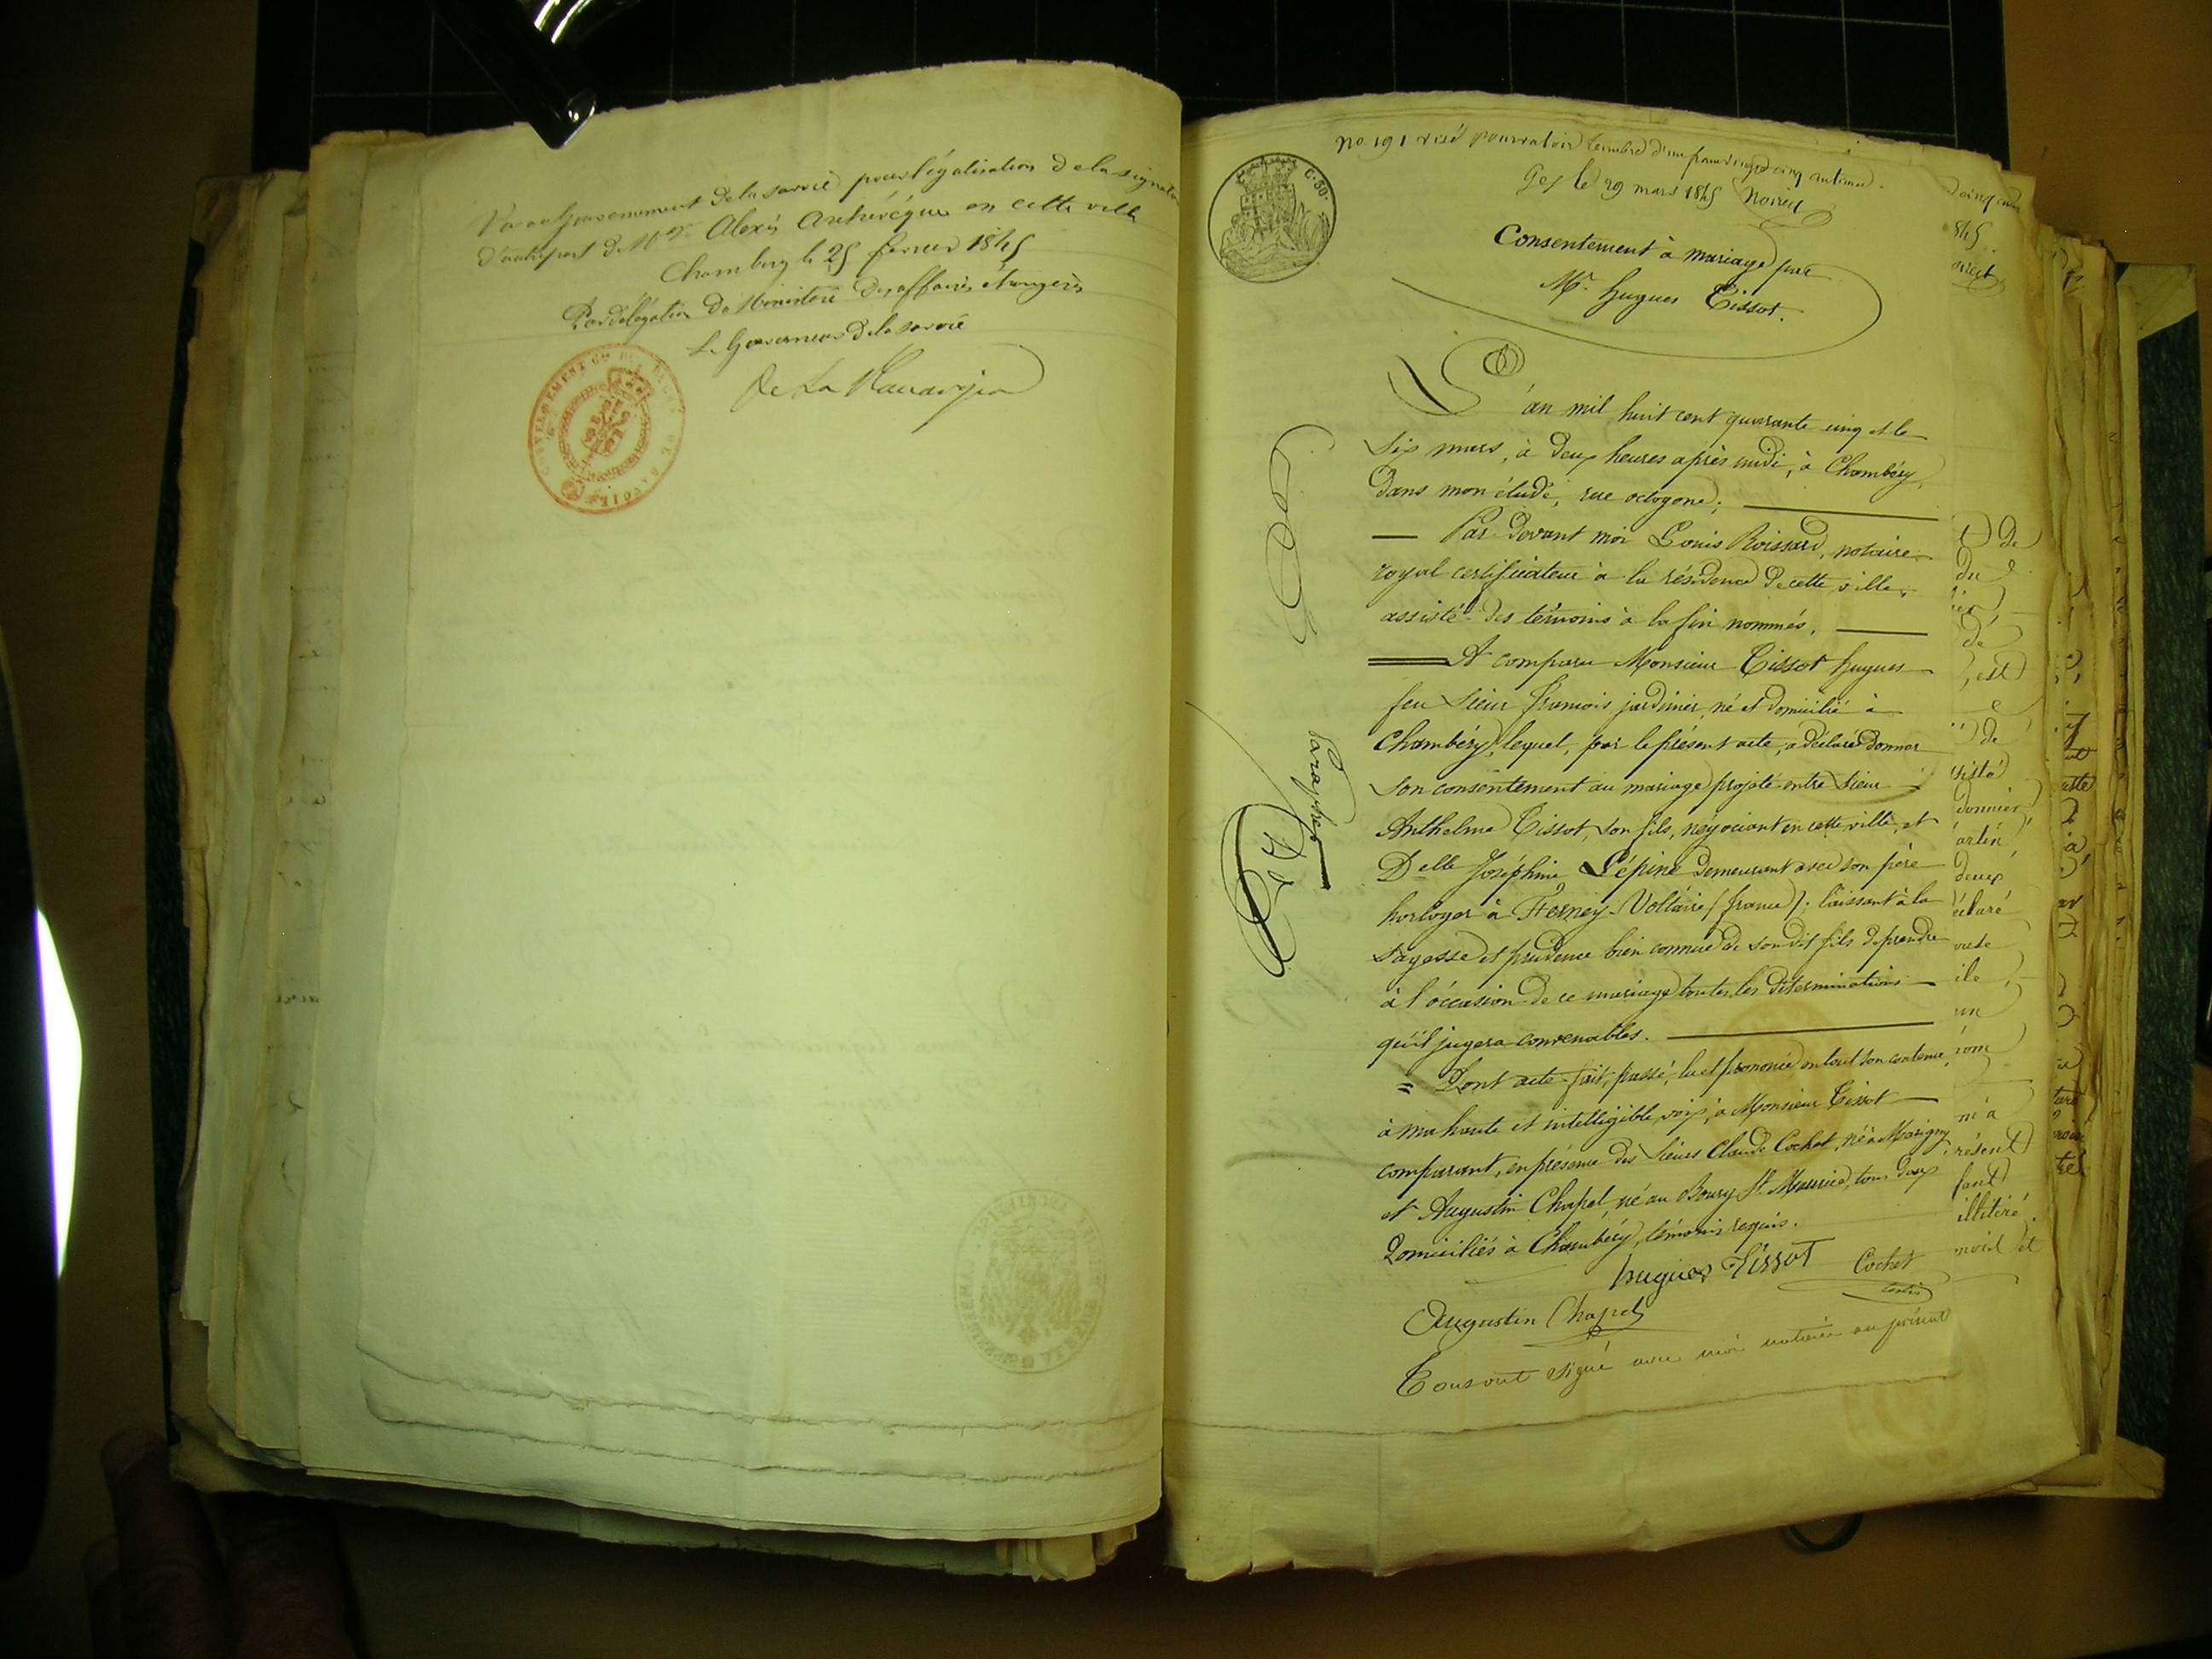 Vu au Gouvernement de la Savoie pour légalisation de la signature
d'autre part de Mgr Alexis Archevêque en cette ville
Chambéry le 25 février 1845
Par délégation du Ministère des affaires étrangères
Le Gouverneur de la Savoie
De La
No 191 visé pour valoir timbre d'un franc vingt cinq centimes.
Gex le 29 mars 1845
Consentement à mariage par
Mr. Hugues Tissot.
L'an mil huit cent quarante cinq et le
Six mars, à deux heures après midi, à Chambéry,
dans mon étude, rue octogone;
Par devant moi Louis Roissard, notaire
royal certificateur à la résidence de cette ville,
assisté des témoins à la fin nommés,
A comparu Monsieur Tissot hugues
feu Sieur françois jardinier, né et domicilié à
Chambéry, lequel, par le présent acte, a déclaré donner
son consentement au mariage projeté entre Sieur
Anthelme Tissot, son fils, négociant en cette ville, et
Delle Joséphine Lépine demeurant avec son père
horloger à Fferney-Voltaire (france); laissant à la
Sagesse et prudence bien connue de son dit fils de prendre
à l'occasion de ce mariage toutes les déterminations
qu'il jugera convenables.
= Dont acte fait, passé, lu et prononcé en tout son contenu,
à ma haute et intelligible voix, à Monsieur Tissot
comparant, en présence des Sieurs Claude Cochet, né à Marigny
et Augustin Chapel, né au Bourg St. Maurice, tous deux
domiciliés à Chambéry, témoins requis.
hugues Tissot Cochet
Augustin Chapel
Tous ont signé avec moi notaire au présent